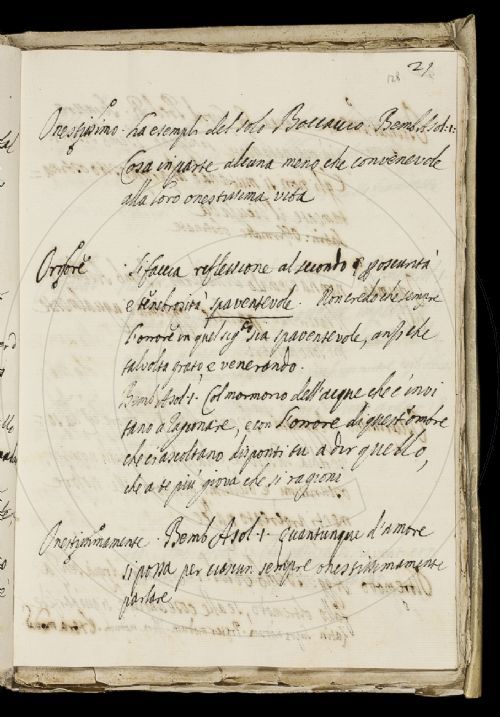 128
29
Onestissimo. ha esempli del solo Boccaccio. Bemb. Asol. 1.
Cosa in parte alcuna meno che convenevole
alla loro onestissima vita
Orrore. Si faccia reflessione al secondo § oscurità
e tenebrosità spaventevole. Non credo che sempre
l'orrore in quel sig.to sia spaventevole, anzi che
talvolta grato e venerando.
Bemb. Asol. 1. Col mormorio dell'acque che c'invi
tano a ragionare, e con l'orrore di quest'ombre
che ci ascoltano disponti tu a dir quello,
che a te più giova che si ragioni
Onestissimamente. Bemb. Asol. 1. quantunque d'amore
si possa per ciascun sempre onestissimamente
parlare